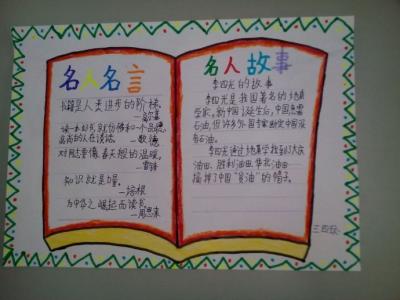 名人名言
书籍是人类进步的阶梯
—高尔基
读一本好书,就仿佛和一个品德
高尚的人在谈话。—歌德
对同志要像春天般的温暖。
—雷锋
知识就是力量。
—培根
为中华之崛起而读书
—周恩来
名人故事
李四光的故事
李四光是我国著名的地质
学家,新中国诞生后,中国急需
石油,但许多外国专家断定中国没
有石油。
李四光通过地质学找到了大庆
油田、胜利油田、华北油田
摘掉了中国“贫油”的帽子。
三四班